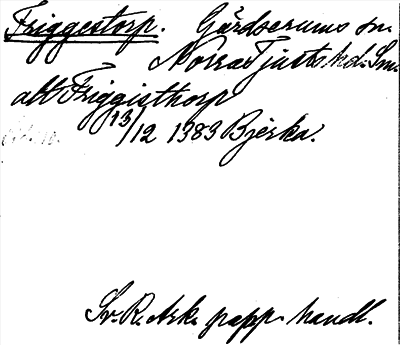 Friggestorp. Gärdserums sn.
Norra Tjusts hd. Sm.
att Friggisthorp
13/12 1383 Bjerka.
Sv. R. Ark. papp. handl.